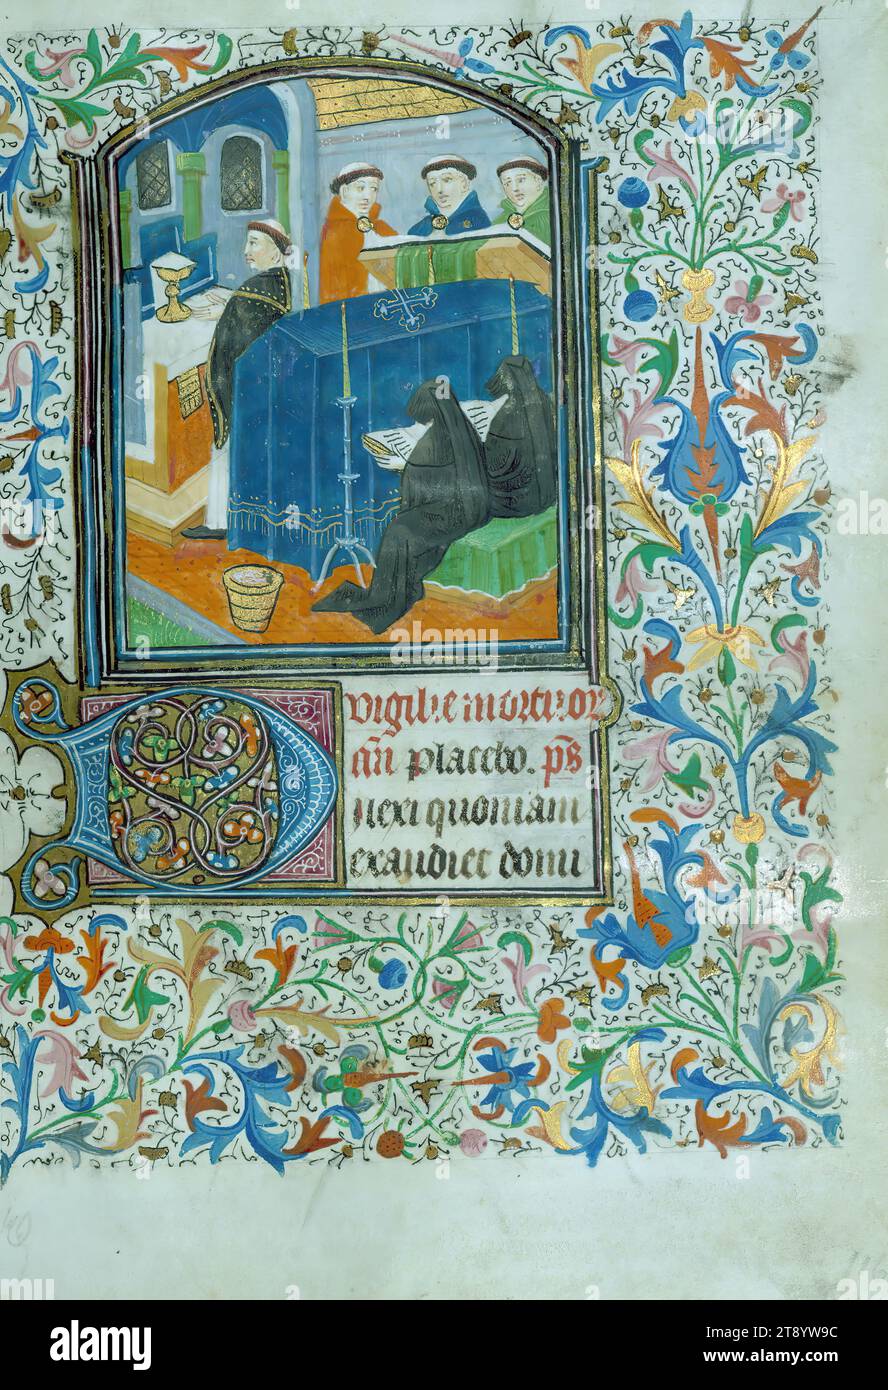 Vigilie mortuor
um placebo. p̄s
Dilexi quoniam
exaudiet domi
alamy
Image ID: 2T8YW9C
www.alamy.com